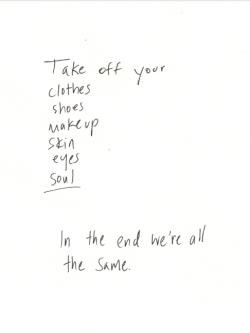 Take off your
clothes
shoes
makeup
skin
eyes
soul
In the end we're all
the same.